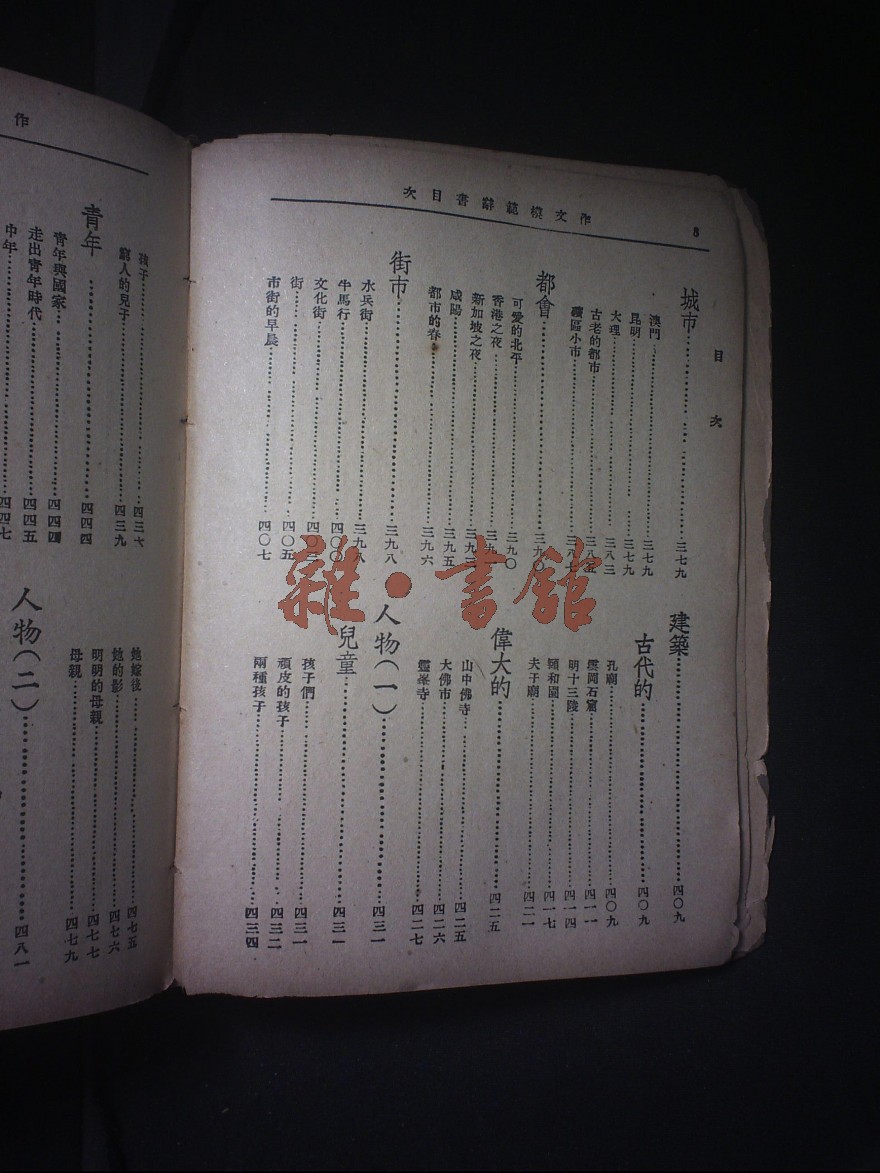 8
作文模範辭書目次
目次
城市……三七九
澳門……三七九
昆明……三七九
大理……三八三
古老的都市……三八五
礦區小市……三八七
都會……三九〇
可愛的北平……三九〇
香港之夜……三九
新加坡之夜……三九
咸陽……三九五
都市的春……三九六
街市……三九八
水兵街……三九八
牛馬行……四〇〇
文化街……四〇
街……四〇五
市街的早晨……四〇七
建築……四〇九
古代的……四〇九
孔廟……四〇九
雲岡石窟……四一一
明十三陵……四一四
頤和園……四一七
夫子廟……四二一
偉大的……四二五
山中佛寺……四二五
大佛市……四二六
靈峯寺……四二七
人物(一)……四三一
兒童……四三一
孩子們……四三一
頑皮的孩子……四三二
兩種孩子……四三四
雜·書館
作
孩子……四三七
窮人的兒子……四三九
青年……四四四
青年與國家……四四四
走出青年時代……四四五
中年……四四七
她嫁後……四七五
她的影……四七六
明明的母親……四七七
母親……四七九
人物(二)……四八一